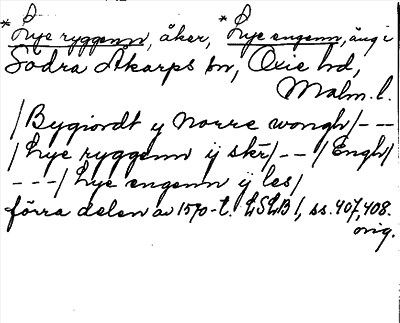 * Lye ryggenn, åker, * Lye engenn, äng i
Södra Åkarps sn, Oxie hd,
Malm. l.
/Bygiordt y Norre wongh/ - -
/Lye ryggenn ÿ skér/ - - /Engh/
- - -/ Lye engenn ÿ les/
förra delen av 1570-t. LSLB 1, ss. 407, 408.
orig.